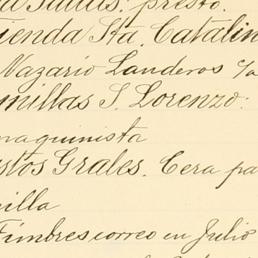 a Salas. presto.
ienda Sta. Catalin
Nazario Landeros c/a
millas S. Lorenzo.
maquinista
stos Grales. Cera pa
illa
Timbres correo en Julio